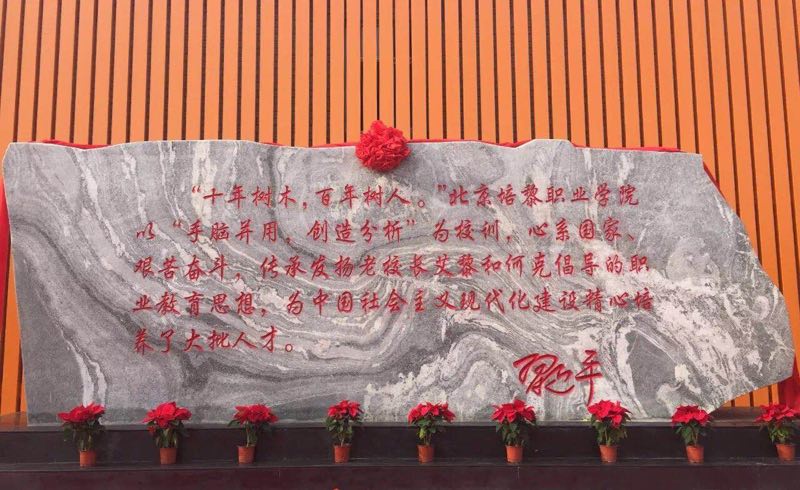 “十年树木，百年树人。”北京培黎职业学院
以“手脑并用，创造分析”为校训，心系国家、
艰苦奋斗，传承发扬老校长艾黎和何克倡导的职
业教育思想，为中国社会主义现代化建设精心培
养了大批人才。
习近平